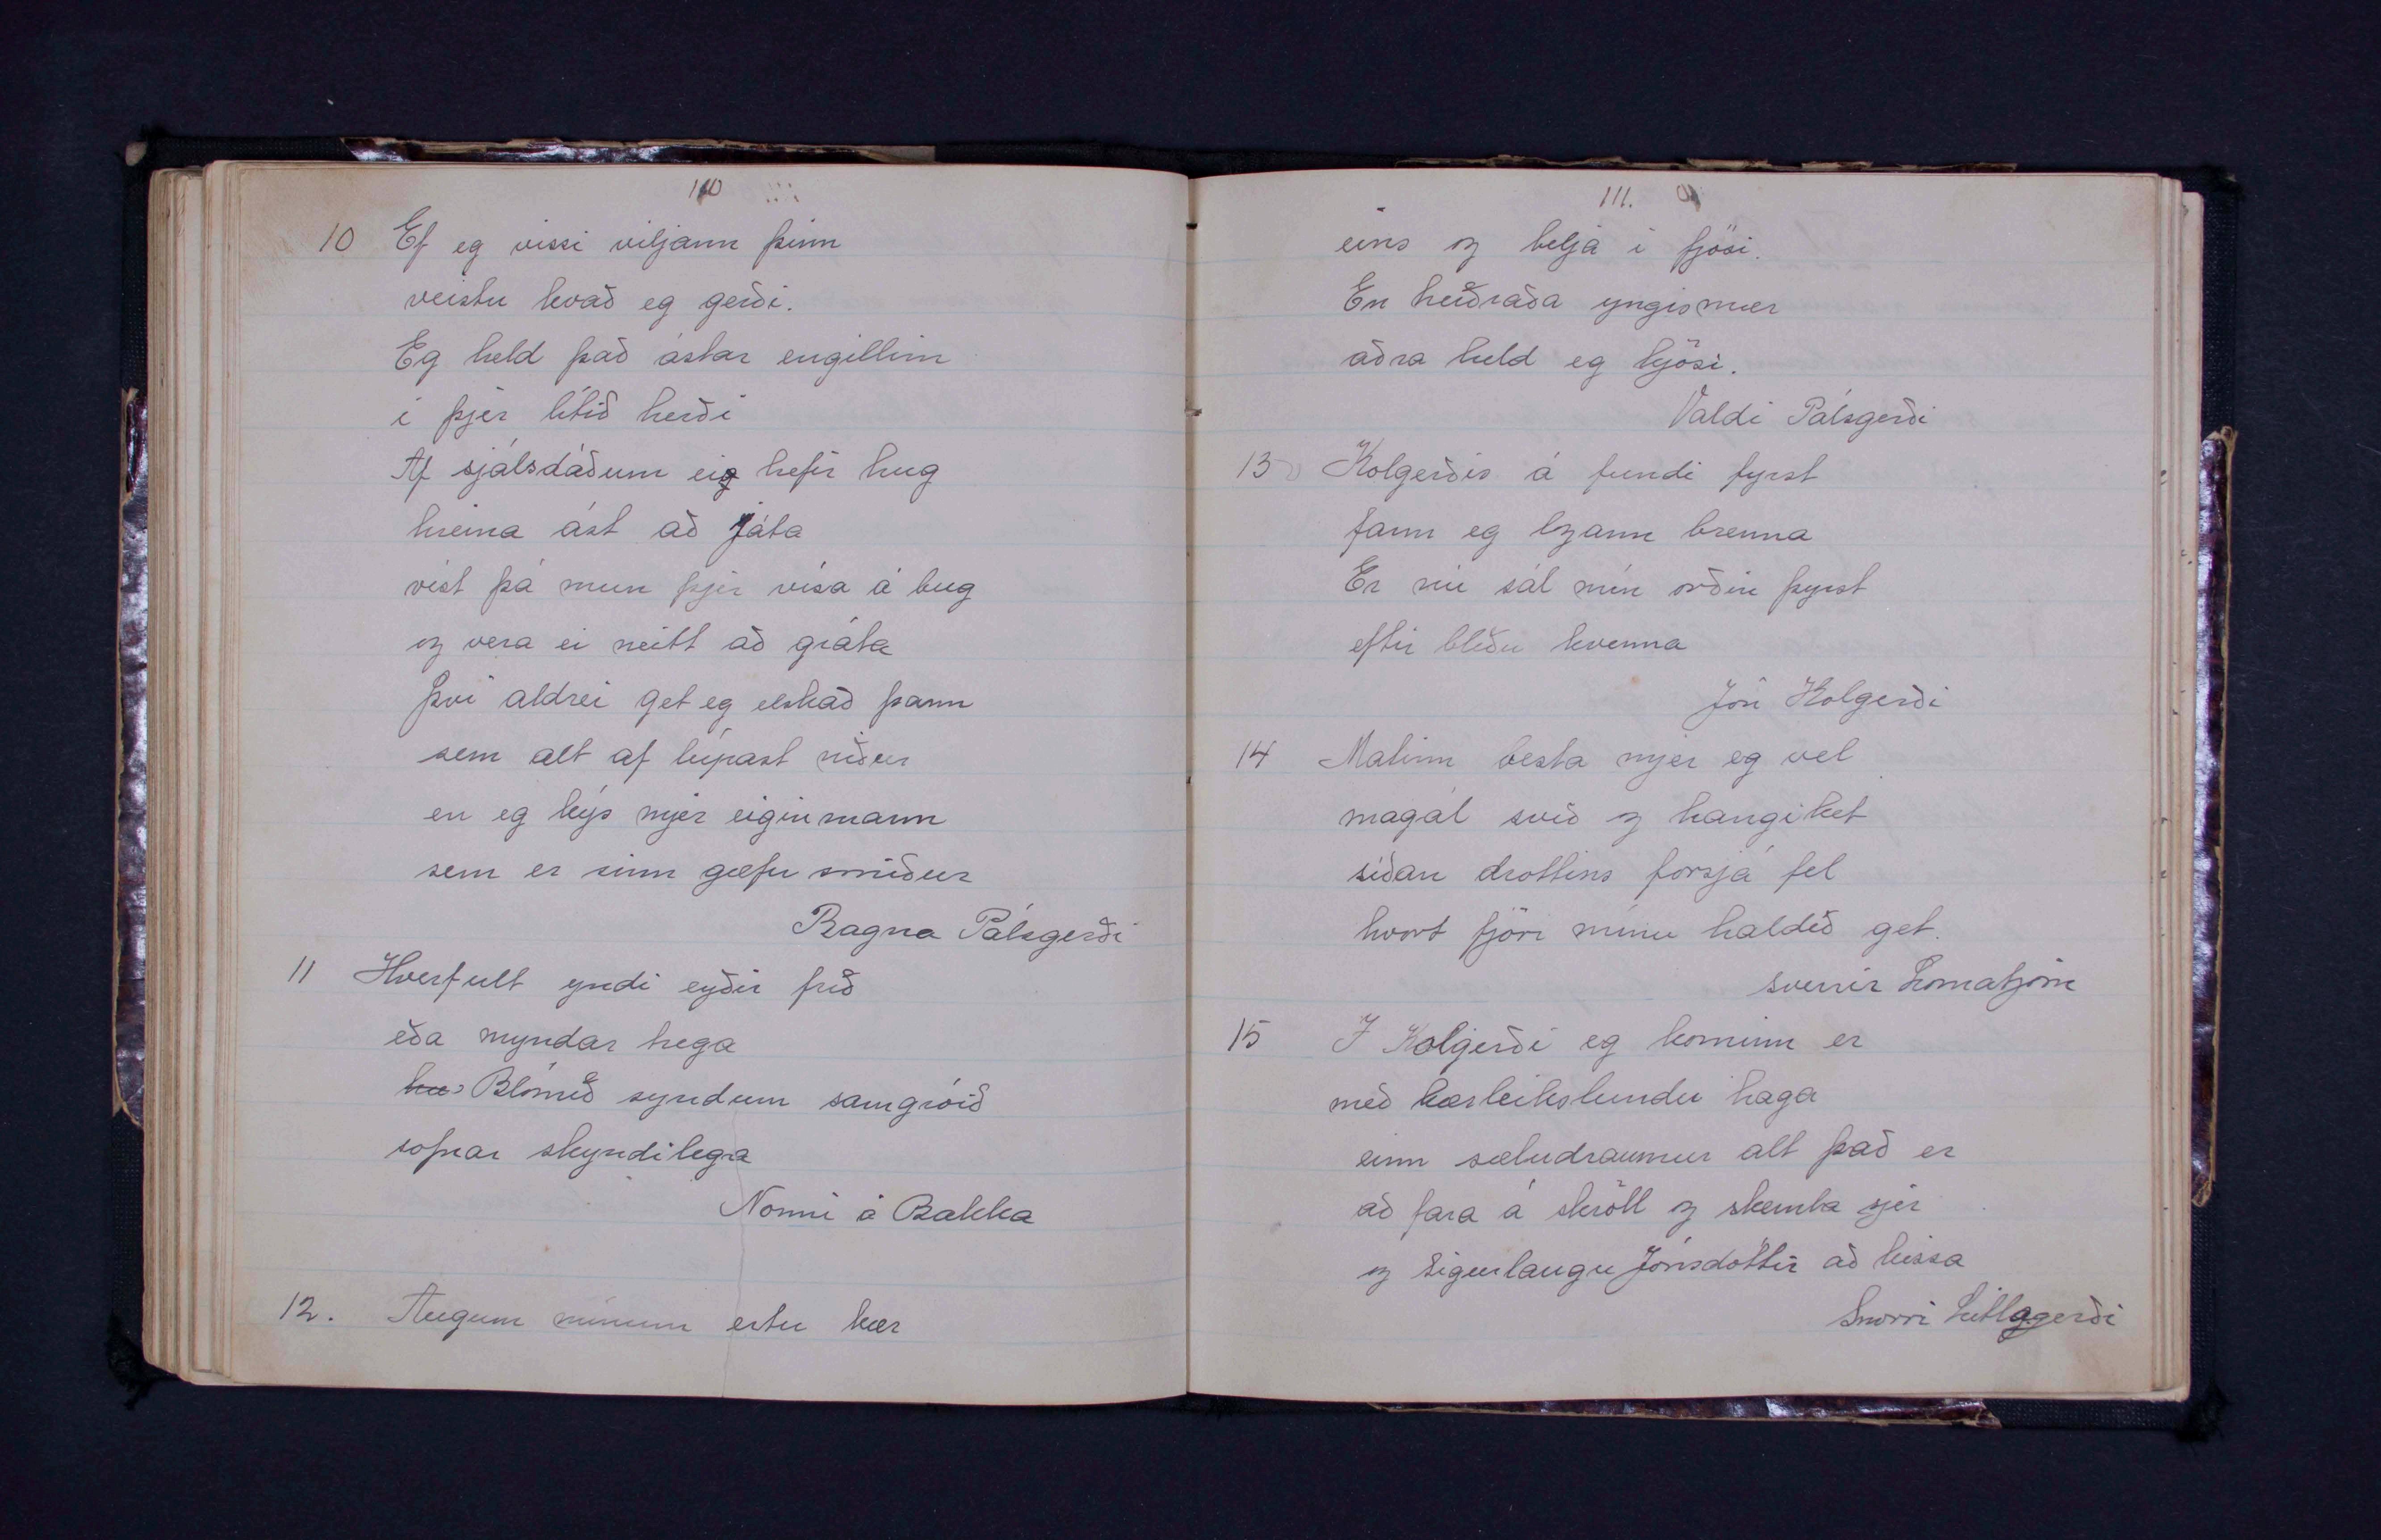 110
10 Ef eg vissi viljann þinn
veistu hvað eg gerði.
Eg held það ástar engillinn
í þjer lítið herði
Af sjálsdáðum eig hefir hug
hreina ást að játa
víst þá mun þjer vísa á bug
og vera ei neitt að gráta
því aldrei get eg elskað þann
sem alt af lúpast niður
en eg kýs mjer eiginmann
sem er sinn gæfu smiður
Ragna Pálsgerði
11 Hverfult yndi eyðir frið
eða myndar trega
Blómið syndum samgróið
sofnar skyndilega
Nonni á Bakka
12. Augum mínum ertu kær
111.
eins og belja í fjósi.
En heiðraða yngismær
aðra held eg kjósi.
Valdi Pálsgerði
13 Kolgerðis á fundi fyrst
fann eg logann brenna
Er nú sál mín orðin þyrst
eftir blíðu kvenna
Jón Kolgerði
14 Matinn besta mjer eg vel
magál svið og hangiket
síðan drottins forsjá fel
hvort fjöri mínu haldið get.
Sverrir Lómatjörn
15 Í Kolgerði eg kominn er
með kærleikslundu haga
einn sæludraumur alt það er
að fara á skröll og skemta sjer
og Sigurlaugu Jónsdóttir að kissa
Snorri Litlagerði